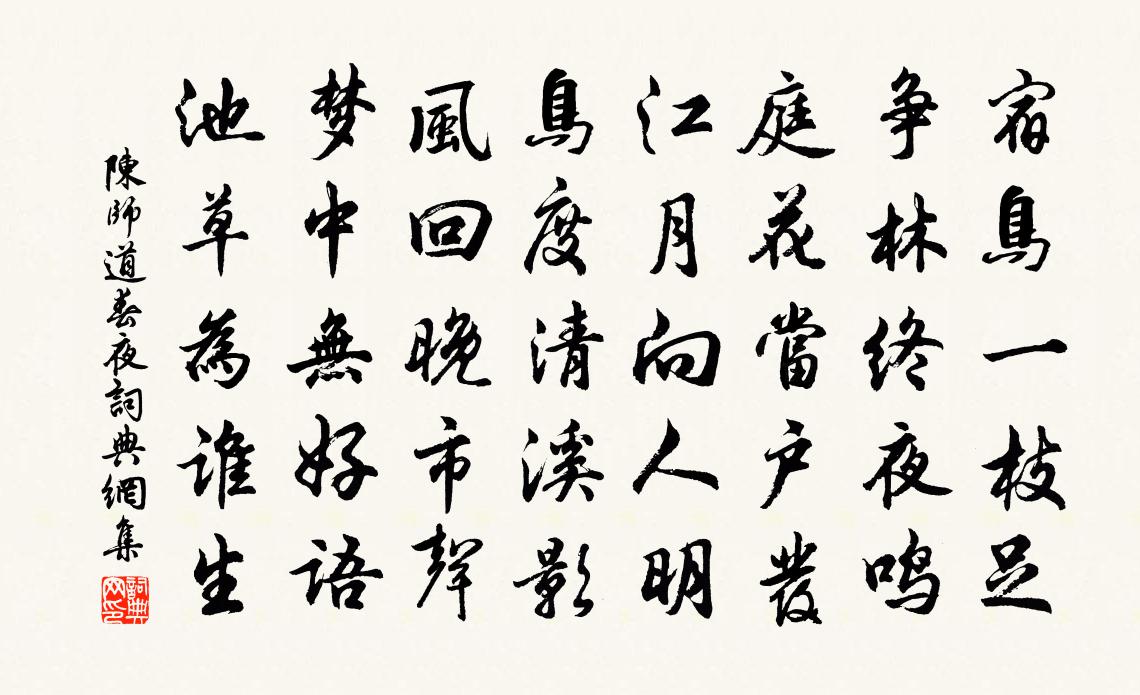 宿鳥一枝足
争林終夜鸣
庭花當户發
江月向人明
鳥度清溪影
風回晚市聲
梦中無好語
池草為誰生
陳師道春夜詞典網集
詞典
网印